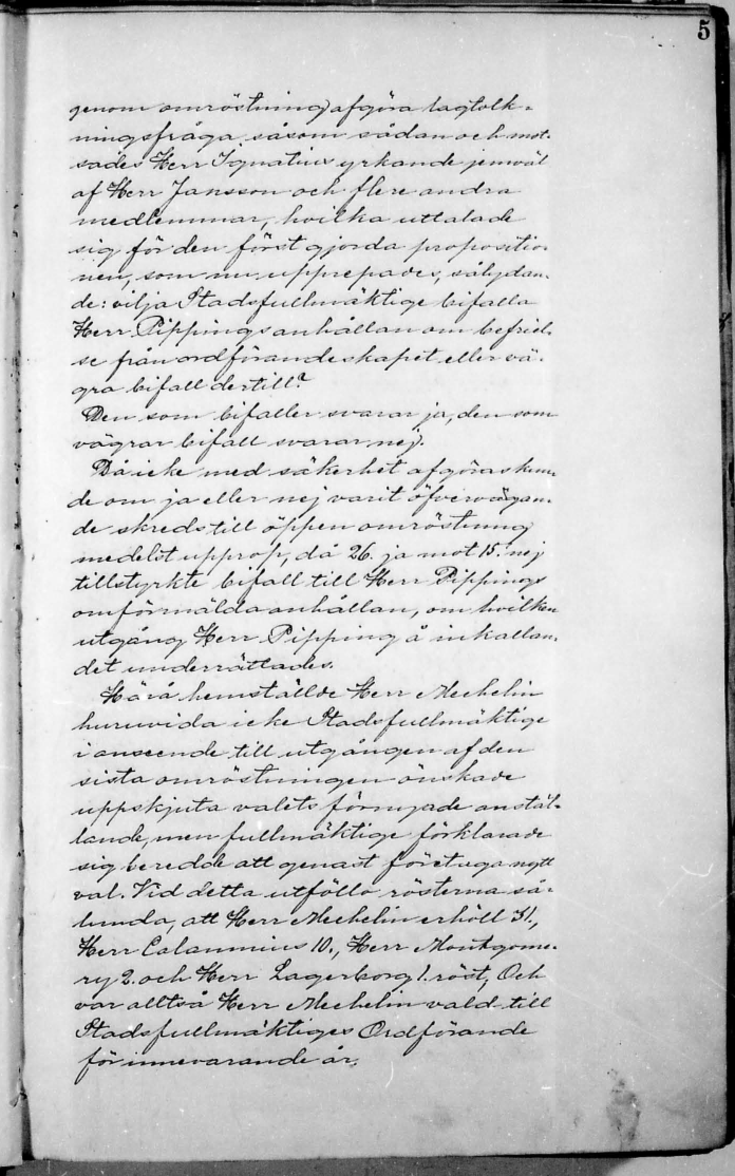 5
genom omröstning) afgöra lagtolk-
ningsfråga, såsom sådan och mot-
sades Herr Ignatius yrkande jemväl
af Herr Jansson och flere andra
medlemmar, hvilka uttalade
sig för den först gjorda propositio-
nen, som nu upprepades, sålydan-
de: vilja Stadsfullmäktige bifalla
Herr Pippings anhållan om befriel-
se från ordförandeskapet eller vä-
gra bifall dertill?
Den som bifaller svarar ja, den som
vägrar bifall svarar nej.
Då icke med säkerhet afgöras kun-
de om ja eller nej varit öfvervägan-
de skreds till öppen omröstning
medelst upprop, då 26. ja mot 15. nej
tillstyrkte bifall till Herr Pippings
omförmälda anhållan, om hvilken
utgång Herr Pipping å inkallan-
det underrättades.
Härå hemställde Herr Mechelin
huruvida icke Stadsfullmäktige
i anseende till utgången af den
sista omröstningen önskade
uppskjuta valets förnyade anstäl-
lande, men fullmäktige förklarade
sig beredde att genast företaga nytt
val. Vid detta utföllo rösterna så-
lunda, att Herr Mechelin erhöll 31.,
Herr Calamnius 10., Herr Montgome-
ry 2. och Herr Lagerborg 1. röst, Och
var alltså Herr Mechelin vald till
Stadsfullmäktiges Ordförande
för innevarande år.